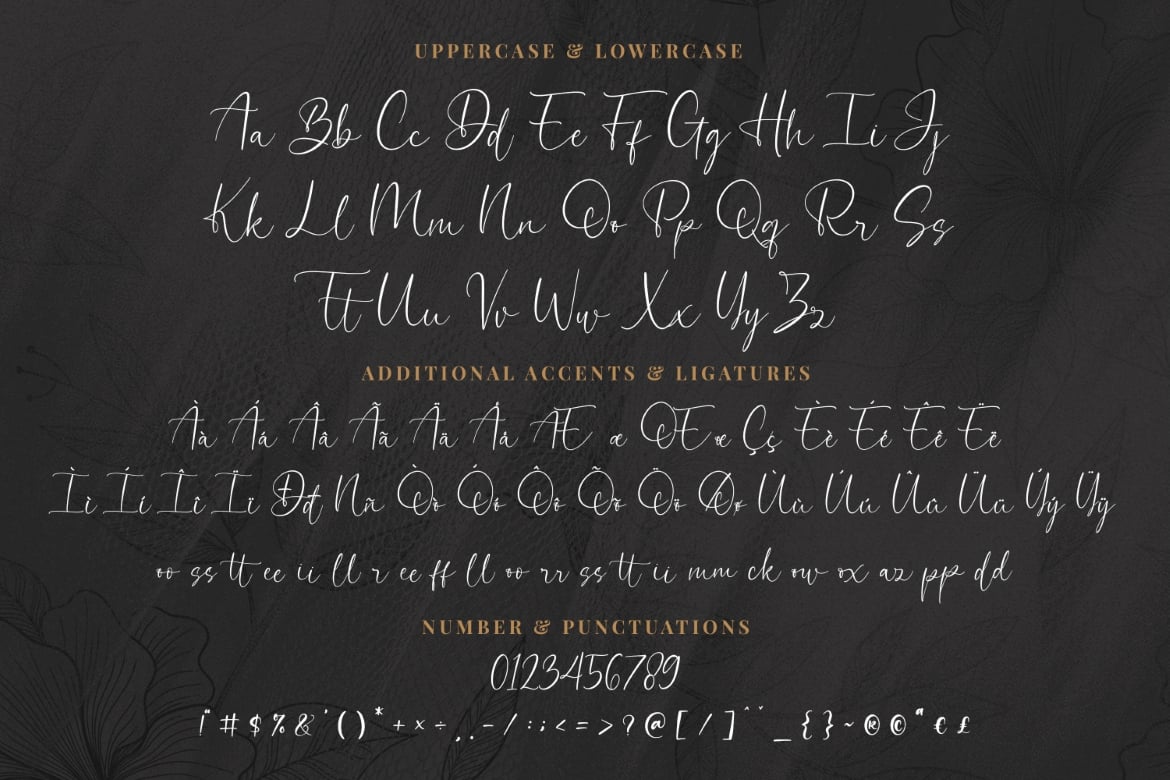 UPPERCASE & LOWERCASE
Aa Bb Cc Dd Ee Ff Gg Hh Ii Jj
Kk Ll Mm Nn Oo Pp Qq Rr Ss
Tt Uu Vv Ww Xx Yy Zz
ADDITIONAL ACCENTS & LIGATURES
Àà Áá Ââ Ãã Ää Åå Æ æ Œ œ Çç Èè Éé Êê Ëë
Ìì Íí Îî Ïï Đđ Ññ Òò Óó Ôô Õõ Öö Øø Ùù Úú Ûû Üü Ýý Ÿÿ
oo ss tt ee ii ll r ee ff ll oo rr ss tt ii mm ck ow ox az pp dd
NUMBER & PUNCTUATIONS
0123456789
!" # $ % & ' ( ) * + × ÷ , . - / : ; < = > ? @ [ / ] ^ ˇ _ { } ~ ® © ª € £